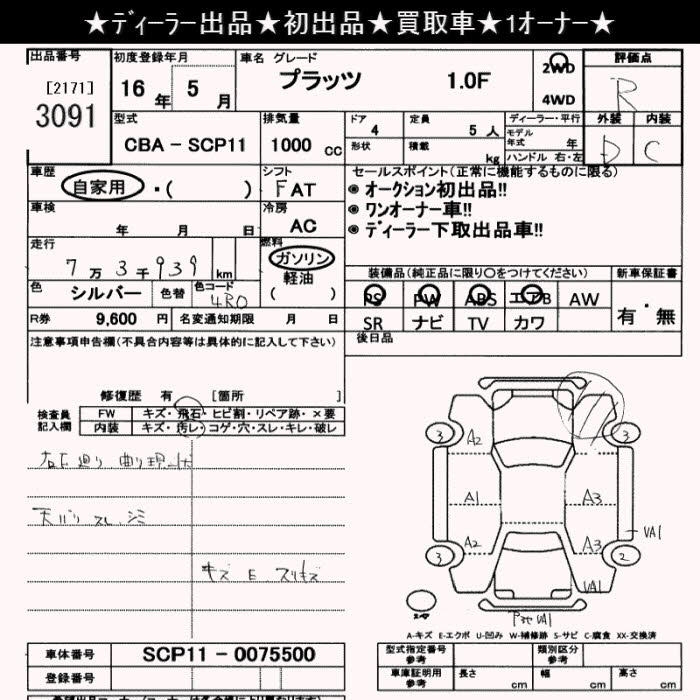 ★ディーラー出品★初出品★買取車★1オーナー★
出品番号 初度登録年月 車名 グレード 評価点
[2171] 3091 16年 5月 プラッツ 1.0F 2WD 4WD R
型式 排気量 ドア 定員 ディーラー・平行 外装 内装
CBA - SCP11 1000 cc 4 5人 モデル年式 年 D C
形状 積載 kg ハンドル 右・左
車歴 シフト セールスポイント(正常に機能するものに限る)
自家用 ・( ) FAT ◉ オークション初出品!!
車検 冷房 ◉ ワンオーナー車!!
年 月 日 AC ◉ ディーラー下取出品車!!
走行 燃料
7万3千939 km ガソリン 軽油 ( )
装備品(純正品に限り○をつけてください) 新車保証書
色 シルバー 色替 色コード 4R0 PS PW ABS エアB AW 有・無
R券 9,600 円 名変通知期限 月 日 SR ナビ TV カワ
注意事項申告欄(不具合内容等は具体的に記入して下さい) 後日品
修復歴 有 [箇所 ]
検査員記入欄 FW キズ・飛石・ヒビ割・リペア跡・×要
内装 キズ・汚レ・コゲ・穴・スレ・キレ・破レ
天バリ スレ、シミ
キズ E スリキズ
3 A2 3
A1 A3
VA1
3 A2 A3 2
VA1
下地 VA1
A-キズ E-エクボ U-凹み W-補修跡 S-サビ C-腐食 XX-交換済
車体番号 SCP11 - 0075500
登録番号
型式指定番号 参考 類別区分 参考
車庫証明用 参考 長さ cm 幅 cm 高さ cm